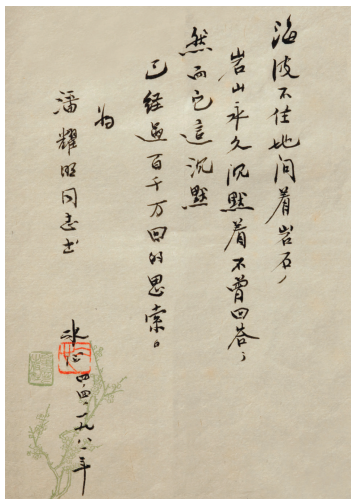 海波不住地问着岩石，
岩山永久沉默着不曾回答；
然而它這沉默
已经过百千万回的思索。
为
潘耀明同志书
冰心
四、四、一九八一年